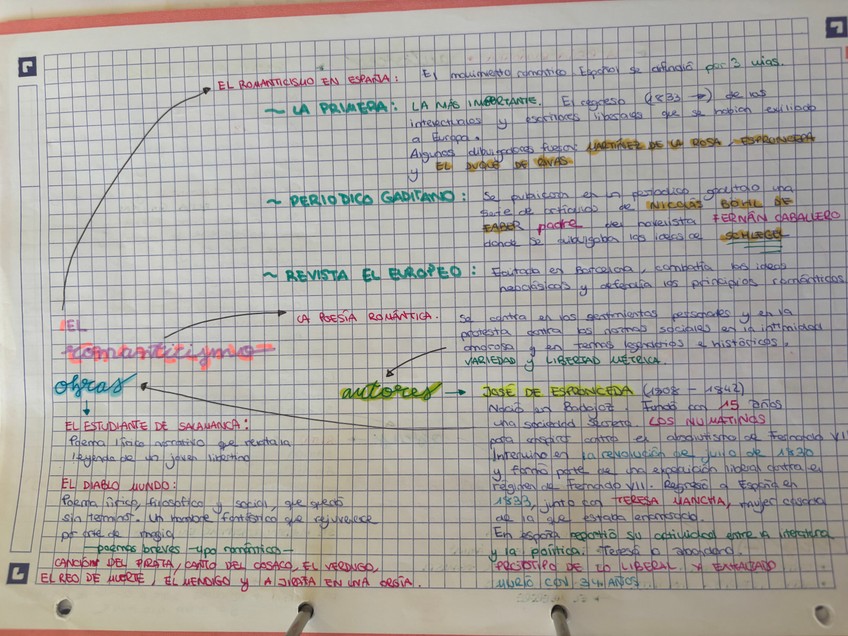 EL ROMANTICISMO EN ESPAÑA: El movimiento romántico Español se difundió por 3 vías.
~ LA PRIMERA: LA MÁS IMPORTANTE. El regreso (1833 →) de los
intelectuales y escritores liberales que se habían exiliado
a Europa.
Algunos dibulgadores fueron MARTÍNEZ DE LA ROSA, ESPRONCEDA
y EL DUQUE DE RIVAS.
~ PERIODICO GADITANO: Se publicaron en un periodico gaditano una
serie de artículos de NICOLÁS BÖHL DE
FABER padre del novelista FERNÁN CABALLERO
donde se dibulgaba las ideas de SCHLEGEL
~ REVISTA EL EUROPEO: Editada en Barcelona, combatía las ideas
neoclásicas y defendía los principios románticos.
EL
romanticismo
LA POESÍA ROMÁNTICA. Se centra en los sentimientos personales y en la
protesta contra las normas sociales en la intimidad
amorosa y en temas legendarios e históricos.
VARIEDAD Y LIBERTAD MÉTRICA.
obras
EL ESTUDIANTE DE SALAMANCA:
Poema lírico narrativo que relata la
leyenda de un joven libertino
EL DIABLO MUNDO:
Poema lírico, filosófico y social, que quedó
sin terminar. Un hombre fantástico que rejuvenece
por arte de magia
—poemas breves -tipo romántico—
CANCIÓN DEL PIRATA, CANTO DEL COSACO, EL VERDUGO,
EL REO DE MUERTE, EL MENDIGO Y A JIRAFA EN UNA ORGÍA.
autores → JOSÉ DE ESPRONCEDA (1808 - 1842)
Nació en Badajoz. Fundó con 15 años
una sociedad secreta. LOS NUMATINOS
para conspirar contra el absolutismo de Fernando VII
Intervino en la revolución de julio de 1830
y formó parte de una expedición liberal contra el
régimen de Fernando VII. Regresó a España en
1833, junto con TERESA MANCHA, mujer casada
de la que estaba enamorado.
En España repartió su actividad entre la literatura
y la política. Teresa lo abandonó.
PROTOTIPO DE LO LIBERAL Y EXALTADO
MURIÓ CON 34 AÑOS